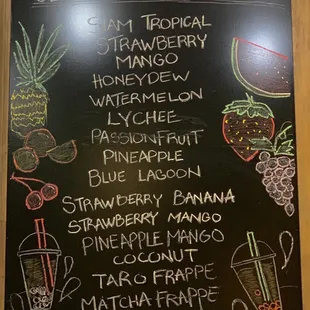 SIAM TROPICAL
STRAWBERRY
MANGO
HONEYDEW
WATERMELON
LYCHEE
PASSIONFRUIT
PINEAPPLE
BLUE LAGOON
STRAWBERRY BANANA
STRAWBERRY MANGO
PINEAPPLE MANGO
COCONUT
TARO FRAPPE
MATCHA FRAPPE